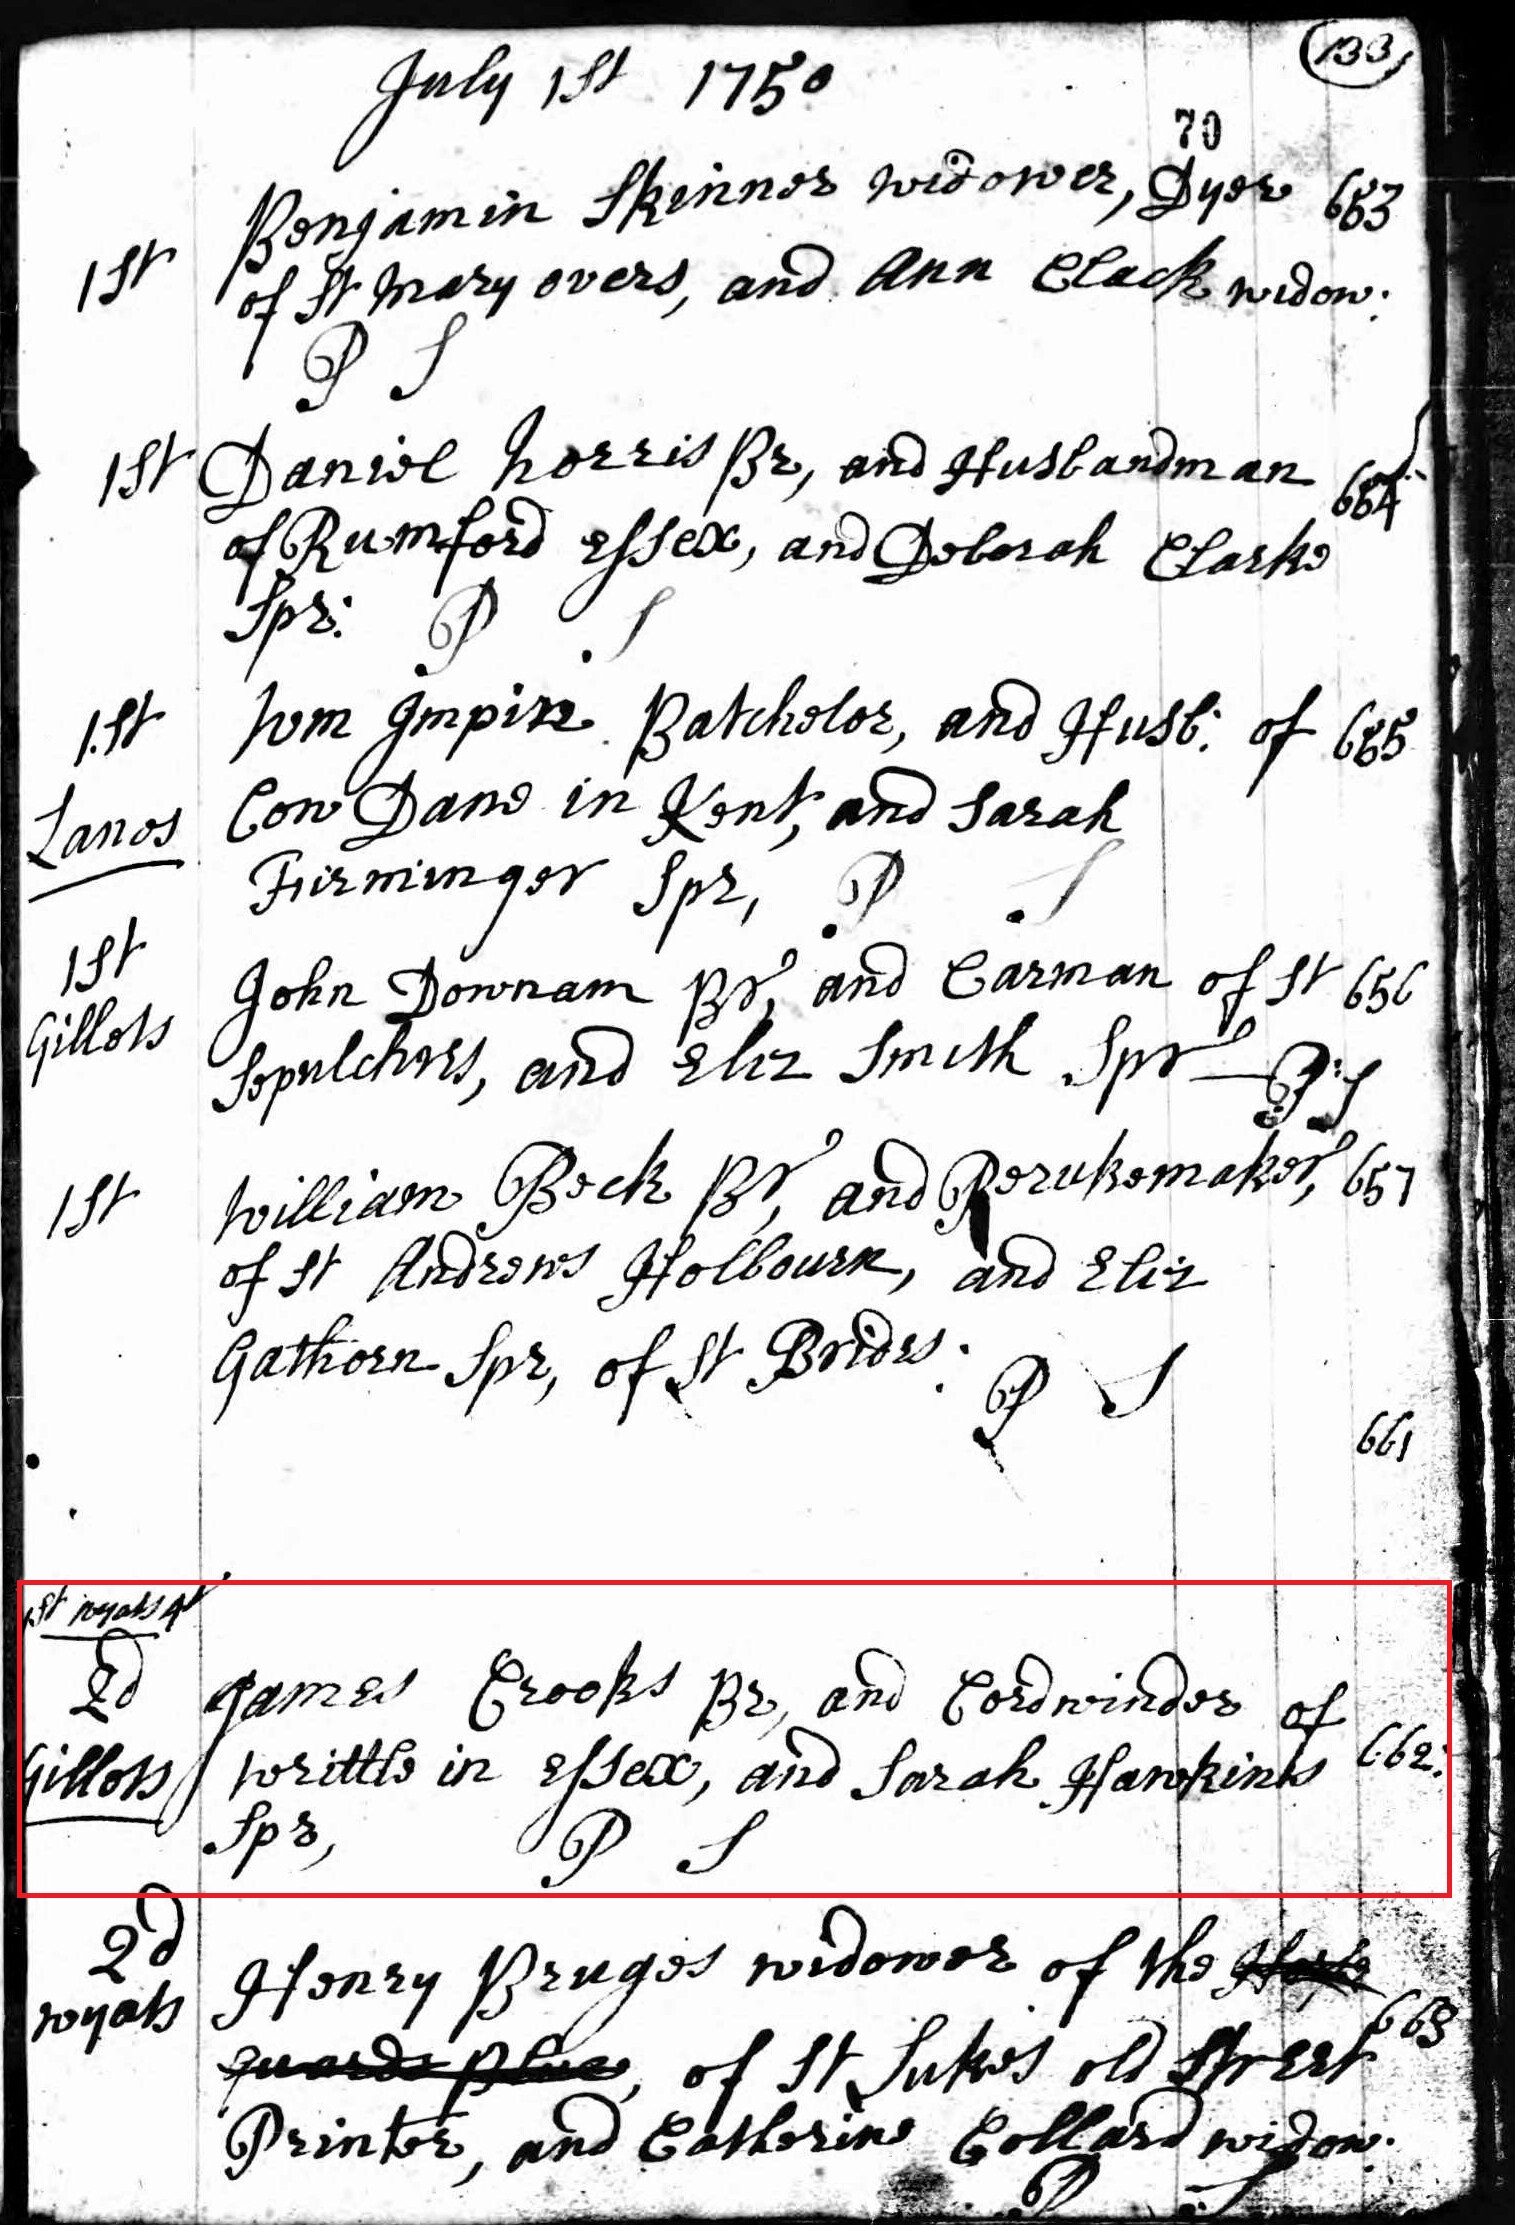 133
July 1st 1750
70
Benjamin Skinner widower, Dyer 683
1st
of St Mary overs, and Ann Clack widow:
P S
1st Daniel Norris Br, and Husbandman 684
of Rumford Essex, and Deborah Clarke
Spr: P S
1st Wm Impire Batchelor, and Husb: of 685
Lanes Cow Dane in Kent, and Sarah
Firminger Spr, P S
1st
John Downam Br, and Carman of St 656
Gillots
Sepulchers, and Eliz Smith Spr P:S
1st William Beck Br, and Perukemaker, 657
of St Andrews Holbourn, and Eliz
Gathorn Spr, of St Brides:
P S
661
1st wyats
2d James Crooks Br, and Cordwinder of
Gillots writtle in Essex, and Sarah Hawkins 662:
Spr, P S
2d Henry Bruges widower of the
wyats 663
guards Blue, of St Lukes old Street
Printer, and Catherine Collard widow:
P S